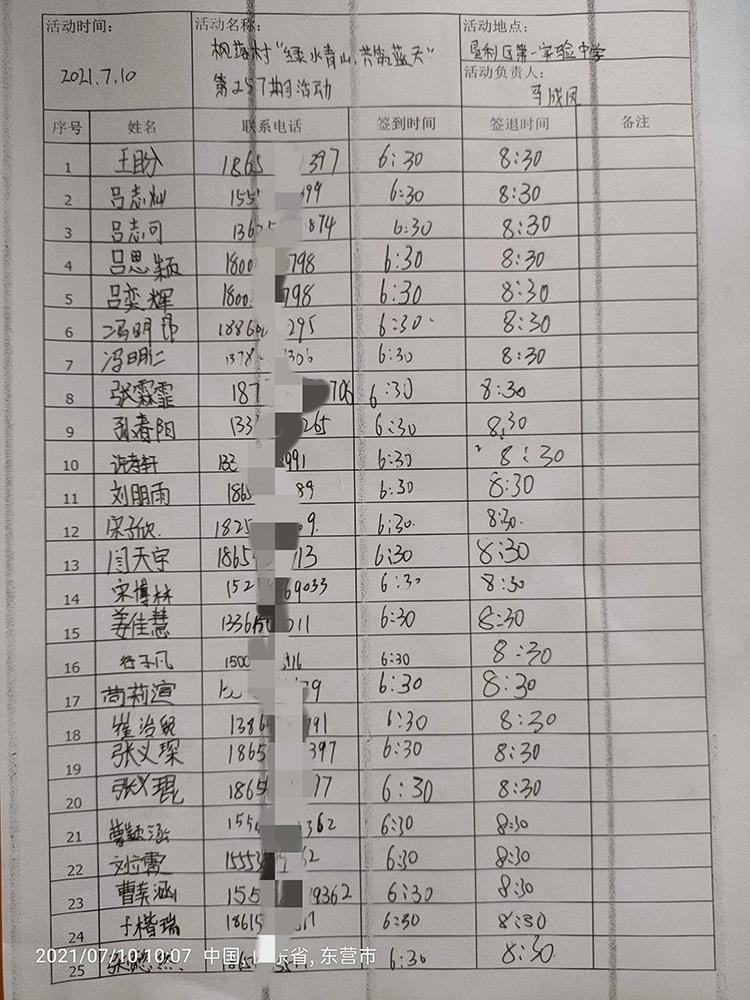 活动时间： 活动名称： 活动地点：
枫落村“绿水青山,共筑蓝天” 垦利区第一实验中学
2021.7.10 第257期活动 活动负责人：
序号 姓名 联系电话 签到时间 签退时间 备注
1 王盼 1865 397 6:30 8:30
2 吕志灿 155 99 6:30 8:30
3 吕志可 136 874 6:30 8:30
4 吕思颖 1800 798 6:30 8:30
5 吕奕辉 1800 798 6:30 8:30
6 冯明昂 1886 295 6:30 8:30
7 冯明仁 1378 306 6:30 8:30
8 张霖霏 187 706 6:30 8:30
9 孙春阳 133 265 6:30 8:30
10 许孝轩 991 6:30 8:30
11 刘朋雨 1865 89 6:30 8:30
12 宋子欣 1825 9 6:30 8:30
13 闫天宇 1865 13 6:30 8:30
14 宋博林 152 69033 6:30 8:30
15 姜佳慧 1336 011 6:30 8:30
16 1500 16 6:30 8:30
17 尚莉渲 79 6:30 8:30
18 崔治 1386 91 6:30 8:30
19 张义琛 1865 397 6:30 8:30
20 张义琨 1865 77 6:30 8:30
21 155 362 6:30 8:30
22 15553 62 6:30 8:30
23 曹奕涵 155 9362 6:30 8:30
24 于楷瑞 18615 6:30 8:30
25 6:30 8:30
2021/07/10 10:07 中国,山东省,东营市